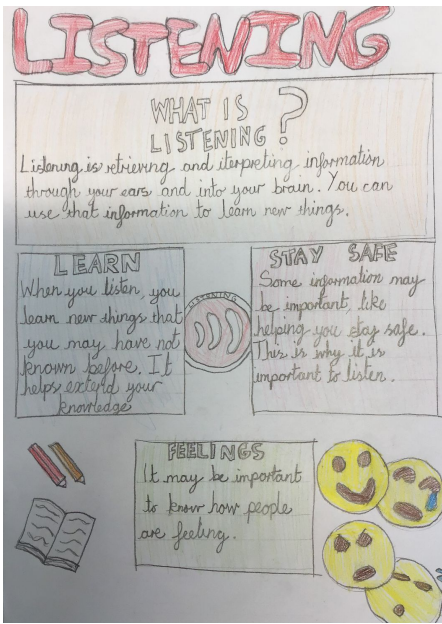 LISTENING
WHAT IS
LISTENING?
Listening is retrieving and iterpreting information
through your ears and into your brain. You can
use that information to learn new things.
LEARN
When you listen, you
learn new things that
you may have not
known before. It
helps extend your
knowledge
LISTENING
STAY SAFE
Some information may
be important, like
helping you stay safe.
This is why it is
important to listen.
FEELINGS
It may be important
to know how people
are feeling.